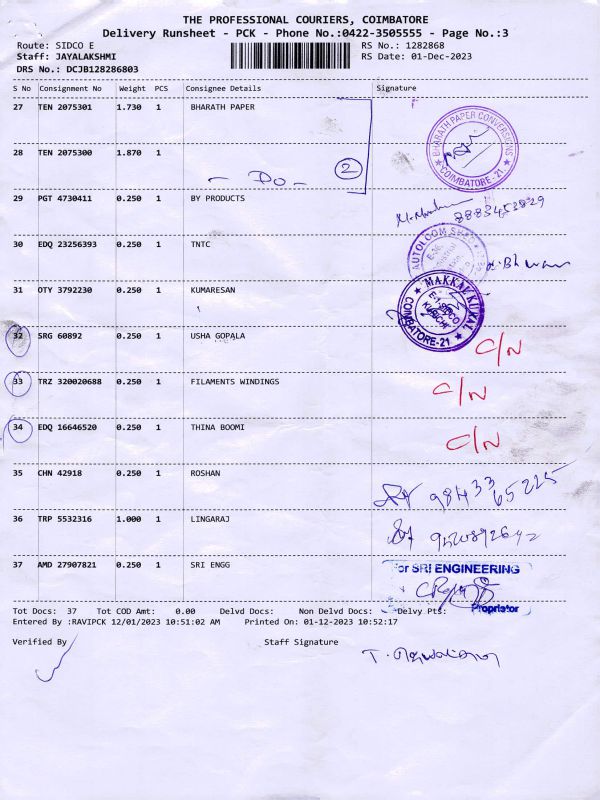 THE PROFESSIONAL COURIERS, COIMBATORE
Delivery Runsheet - PCK - Phone No.:0422-3505555 - Page No.:3
Route: SIDCO E RS No.: 1282868
Staff: JAYALAKSHMI RS Date: 01-Dec-2023
DRS No.: DCJB128286803
S No Consignment No Weight PCS Consignee Details Signature
27 TEN 2075301 1.730 1 BHARATH PAPER
BHARATH PAPER CONVERSIONS COIMBATORE-21
28 TEN 2075300 1.870 1
- Do - 2
29 PGT 4730411 0.250 1 BY PRODUCTS
8883453829
30 EDQ 23256393 0.250 1 TNTC
31 OTY 3792230 0.250 1 KUMARESAN
MAKKAL KURAL COIMBATORE-21
32 SRG 60892 0.250 1 USHA GOPALA C/N
33 TRZ 320020688 0.250 1 FILAMENTS WINDINGS C/N
34 EDQ 16646520 0.250 1 THINA BOOMI C/N
35 CHN 42918 0.250 1 ROSHAN 98433 65225
36 TRP 5532316 1.000 1 LINGARAJ
37 AMD 27907821 0.250 1 SRI ENGG
For SRI ENGINEERING
Proprietor
Tot Docs: 37 Tot COD Amt: 0.00 Delvd Docs: Non Delvd Docs: Delvy Pts:
Entered By :RAVIPCK 12/01/2023 10:51:02 AM Printed On: 01-12-2023 10:52:17
Verified By Staff Signature